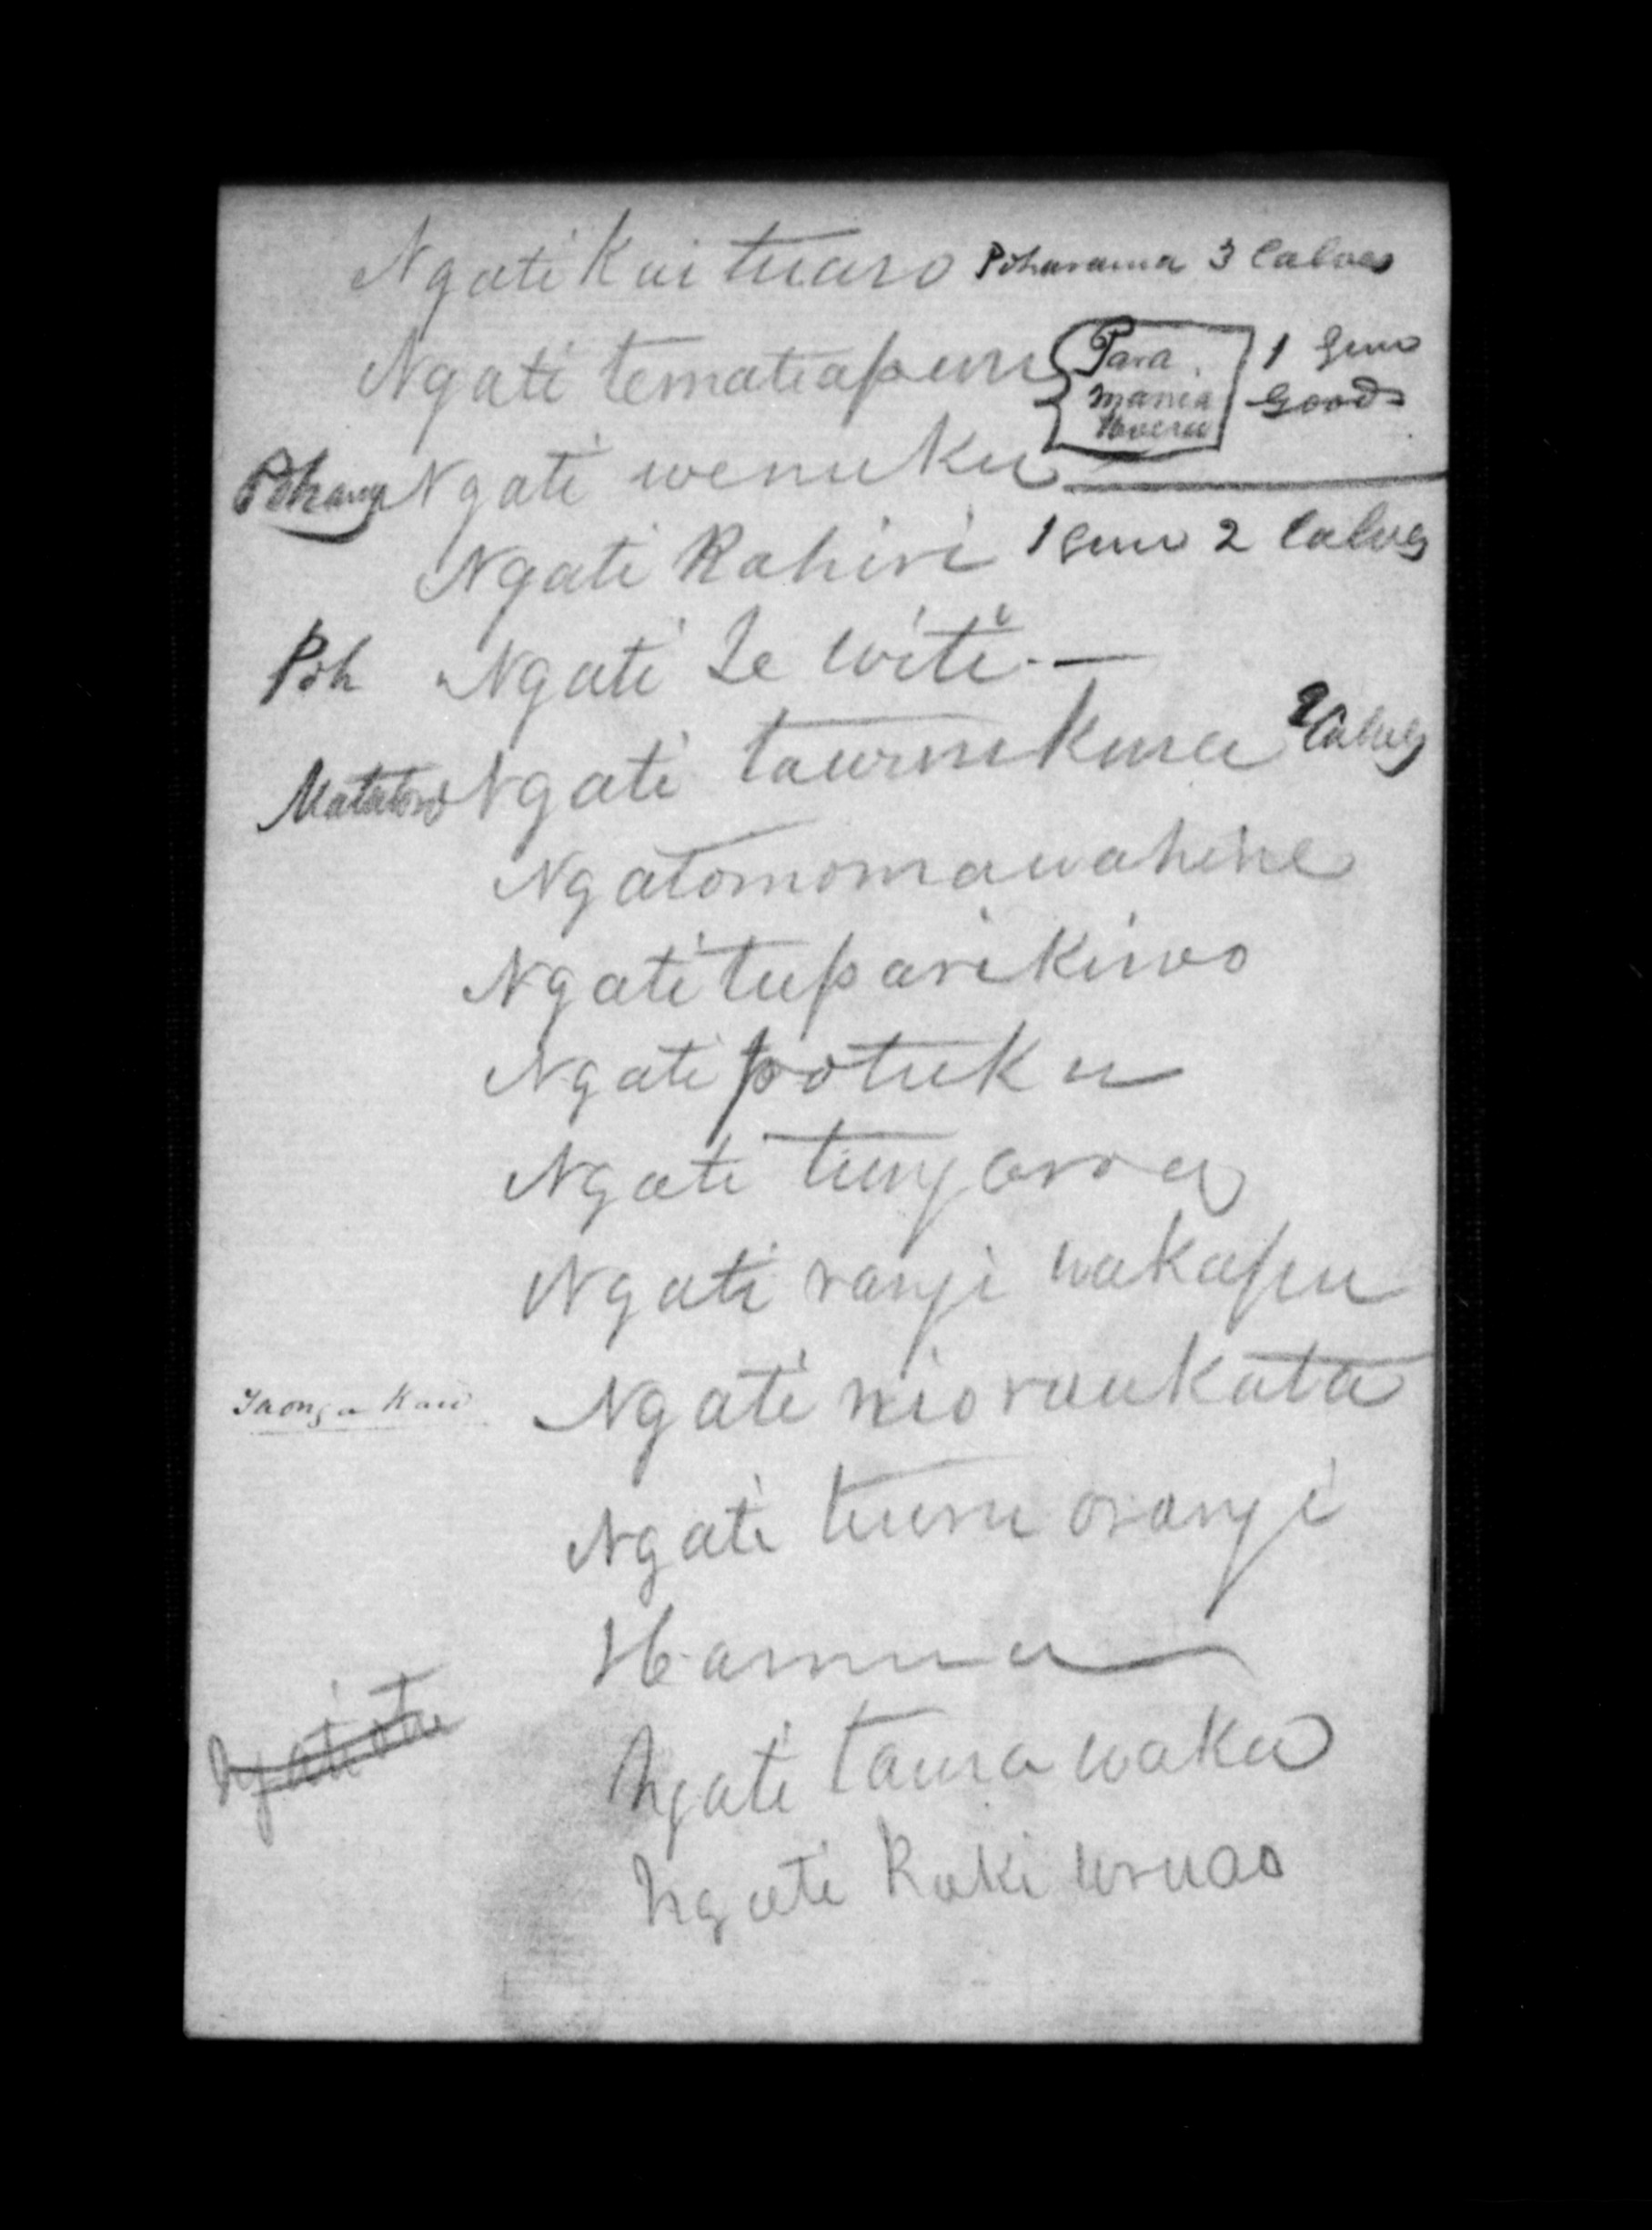 Ngati Kai tuaro Poharama 3 Calves
Ngati temateapuru Para 1 Gun
mania Goods
Poharama Ngati wenuku
Ngati Rahiri 1 Gun 2 Calves
Poh Ngati Te witi —
Ngati tawirikura 2 Calves
Ngatomomawahine
Ngati tuparikino
Ngati potuku
Ngati tungarua
Ngati rangi wakapu
Taonga Kaio Ngati nioraukata
Ngati tuuru orangi
Hamua
Ngati taura waka
Ngati Kaki uruao